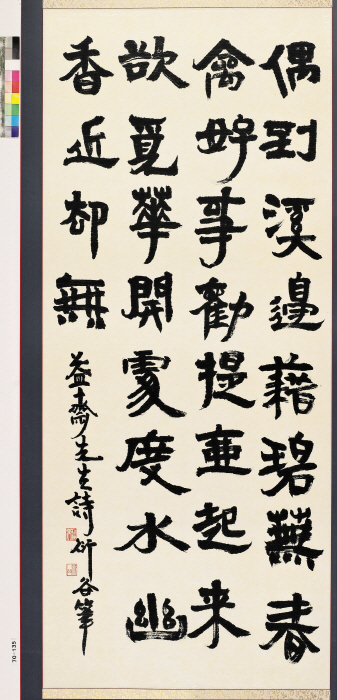 偶到溪邊藉碧蕪春
禽好事勸提壺起来
欲覓華開處度水幽
香近却無
益齋先生詩 谷筆
70-135